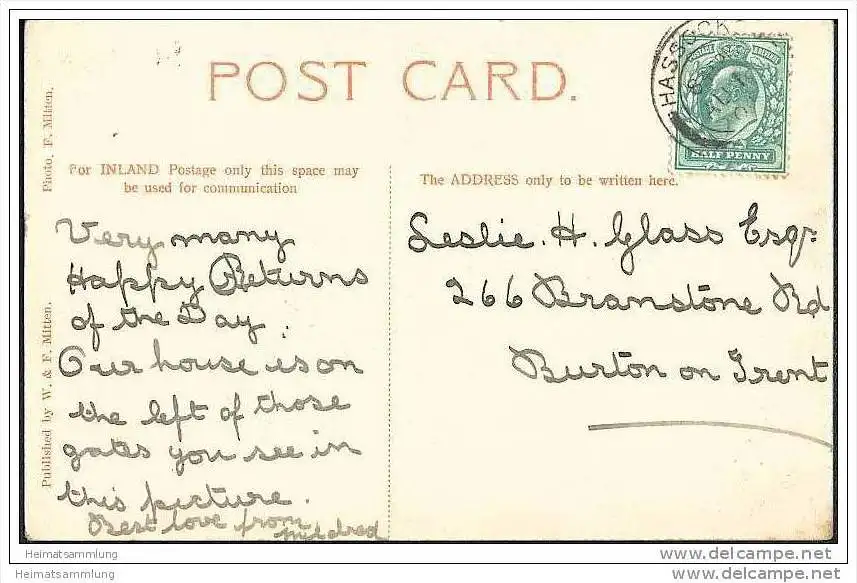 POST CARD.
HASSOCKS
HALF PENNY
Photo, F. Mitten.
Published by W. & F. Mitten.
For INLAND Postage only this space may
be used for communication
The ADDRESS only to be written here.
Very many
Happy Returns
of the Day.
Our house is on
the left of those
gates you see in
this picture.
Best love from
Mildred
Leslie. H. Glass Esqr
266 Branstone Rd
Burton on Trent
Heimatsammlung
Heimatsammlung
delcampe.net